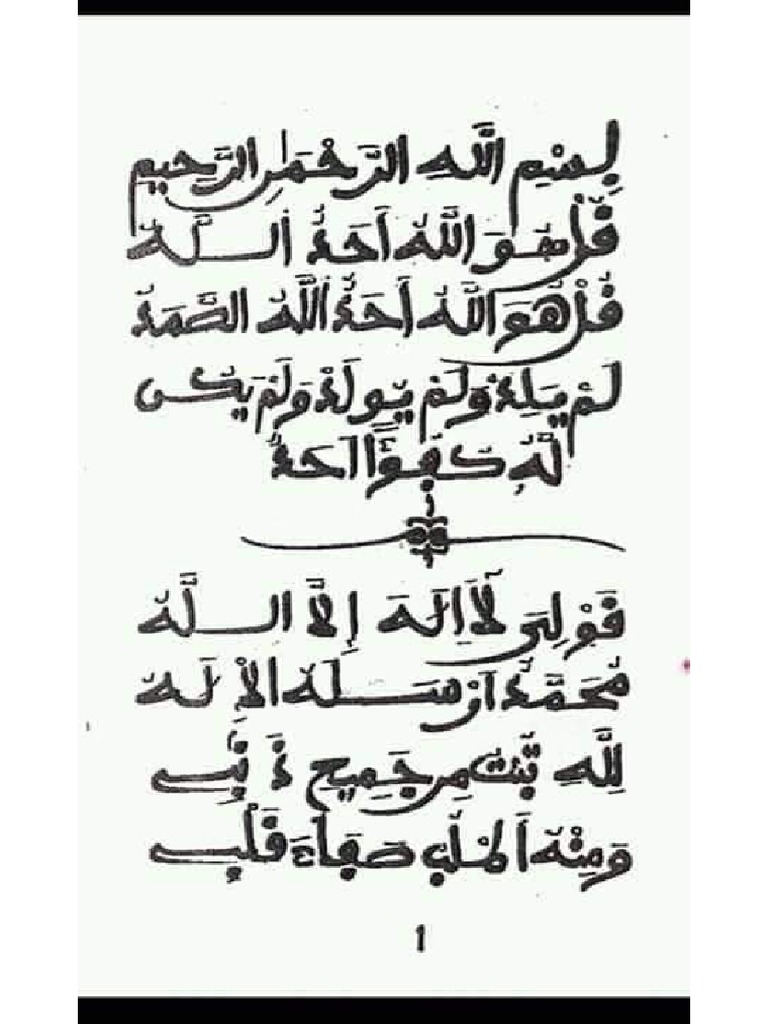 بِسْمِ اللَّهِ الرَّحْمَٰنِ الرَّحِيمِ
قُلْ هُوَ اللَّهُ أَحَدٌ اللَّهُ
قُلْ هُوَ اللَّهُ أَحَدٌ اللَّهُ الصَّمَدُ
لَمْ يَلِدْ وَلَمْ يُولَدْ وَلَمْ يَكُن
لَّهُ كُفُؤًا أَحَدٌ
قَوْلِي لَا إِلَهَ إِلَّا اللَّهُ
مُحَمَّدٌ أَرْسَلَهُ الْإِلَهُ
لِلَّهِ تُبْتُ مِن جَمِيعِ ذَنْبِي
وَمِنْهُ أَطْلُبُ صَفَاءَ قَلْبِي
1